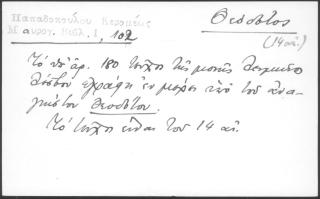 Θεόδοτος
Παπαδοπούλου Κεραμέως
Μαυρογ. Βιβλ. Ι, 102
(14 αἰ.)
Τὸ ὑπ' ἀρ. 180 τεῦχος τῆς μονῆς Λειμῶνος
Λέσβου ἐγράφη ἐν μέρει ὑπὸ τοῦ ἀνα-
γνώστου Θεοδότου.
Τὸ τεῦχος εἶναι τοῦ 14 αἰ.